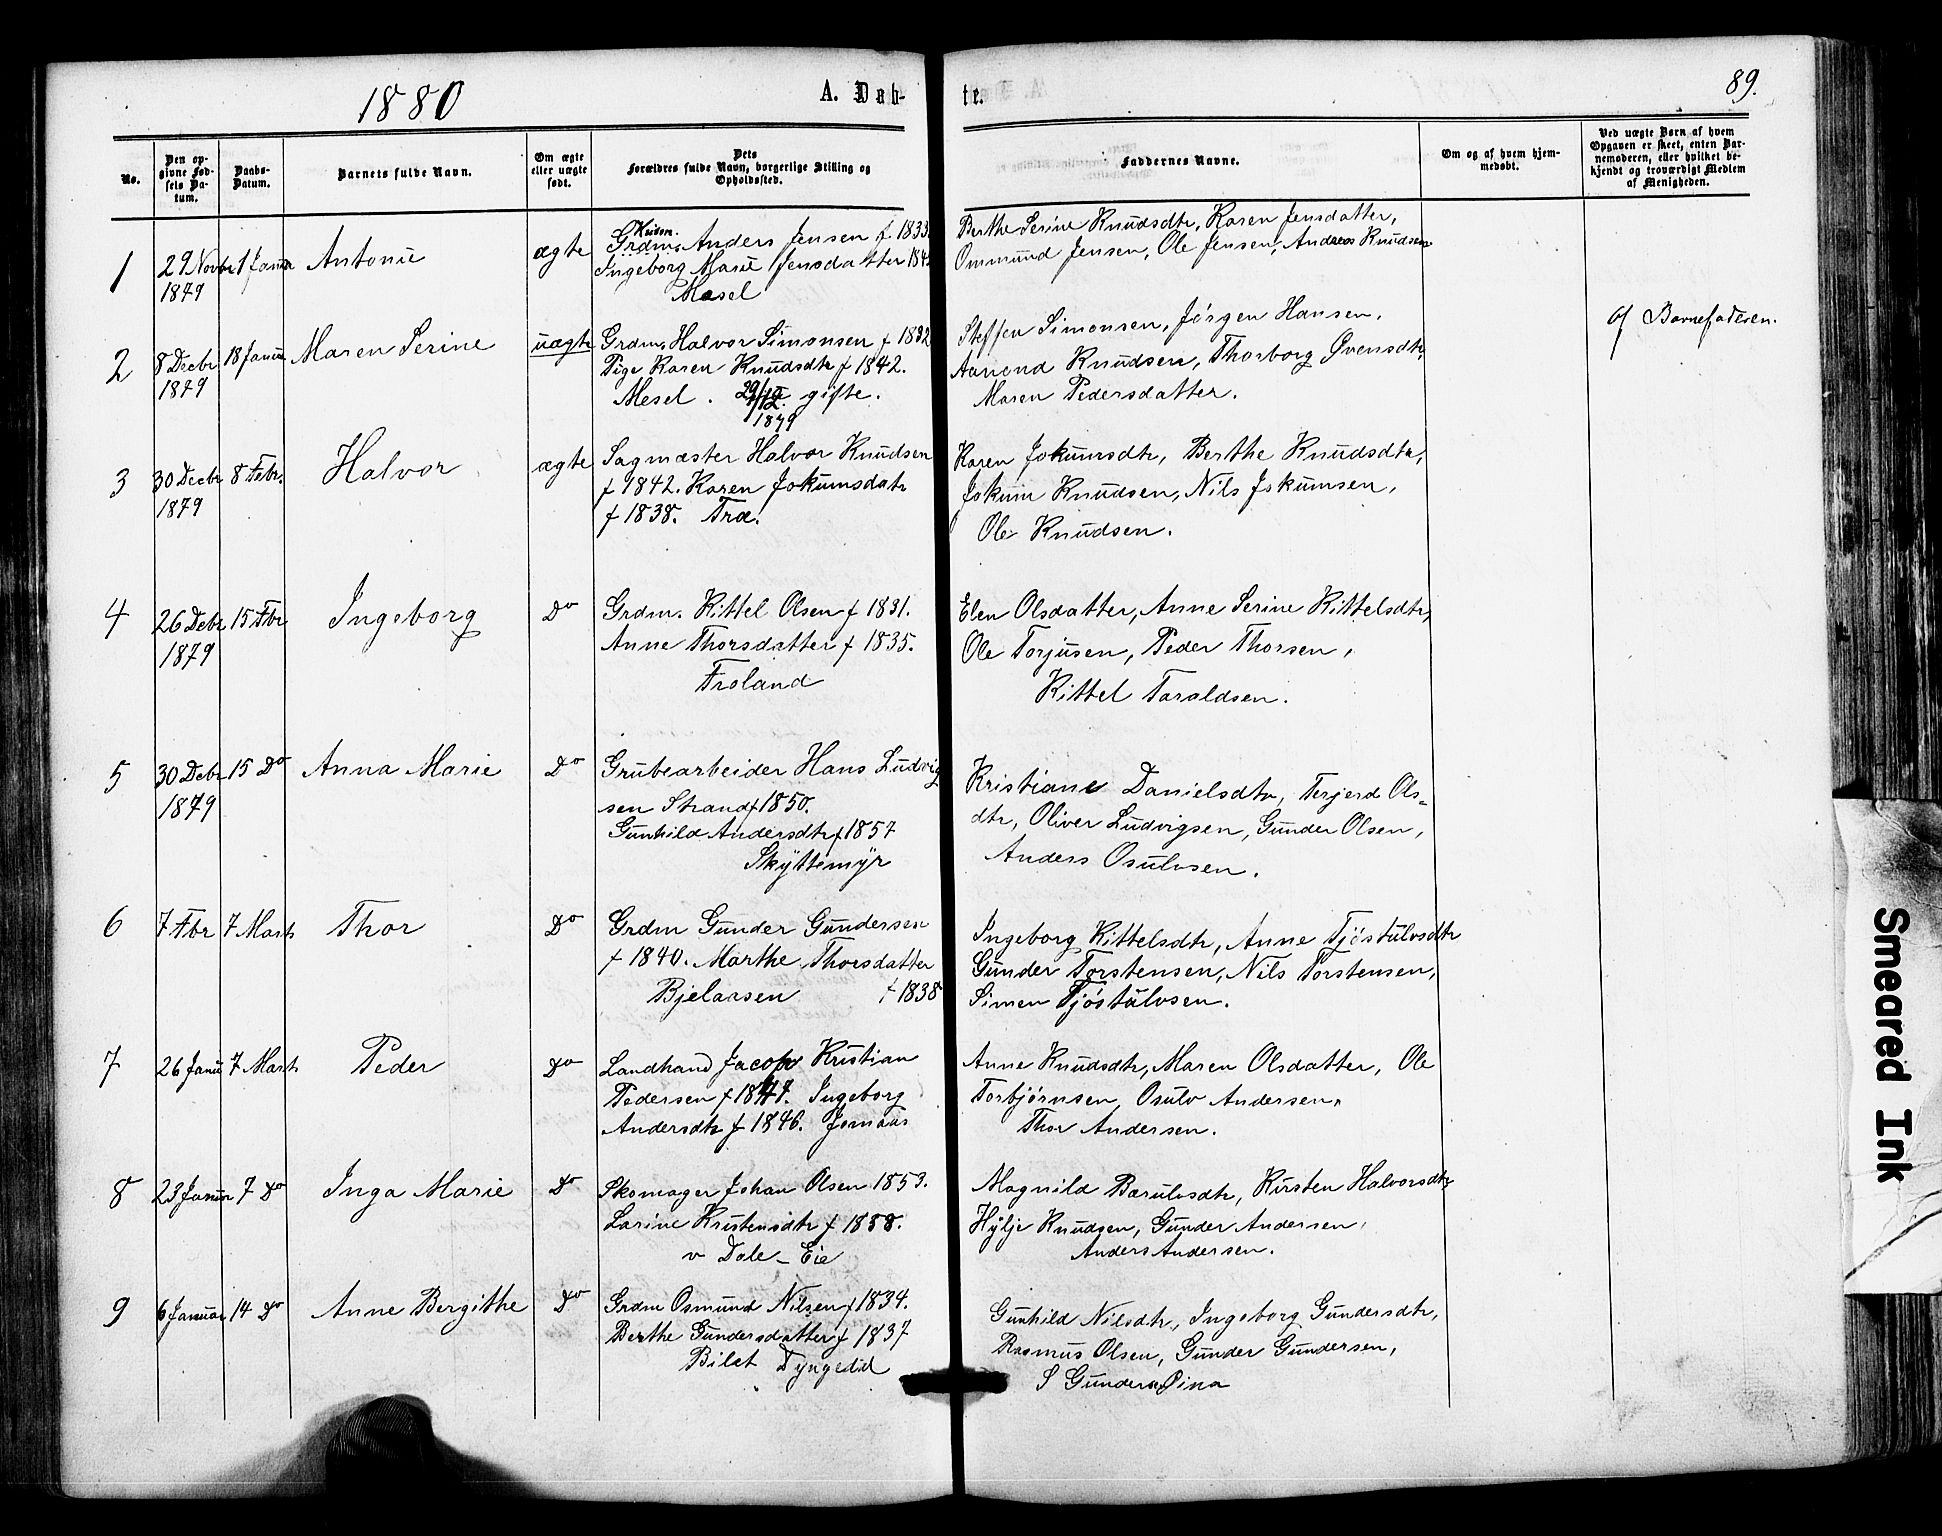 1880
A. Døb-
te.
89.
No.
Den op-
givne Fød-
sels Da-
tum.
Daabs-
Datum.
Barnets fulde Navn.
Om ægte
eller uægte
født.
Dets
Forældres fulde Navn, borgerlige Stilling og
Opholdssted.
Faddernes Navne.
Om og af hvem hjem-
medøbt.
Ved uægte Børn af hvem
Opgaven er skeet, enten Bar-
nemoderen, eller hvilket be-
kjendt og troværdigt Medlem
af Menigheden.
1
29 Novbr
1879
1 Janua
Antonie
ægte
Grdm. Anders Jensen f. 1833
Ingeborg Marie Jensdatter
Mesel
Berthe Serine Knudsdtr, Karen Jensdatter,
Ommund Jensen, Ole Jensen, Andreas Knudsen
2
8 Decbr
1879
18 Janua
Maren Serine
uægte
Grdm. Halvor Simonsen f 1832
Pige Karen Knudsdtr f 1842.
Mesel. 29/12 gifte.
1879
Steffen Simonsen, Jörgen Hansen,
Aanond Knudsen, Thorborg Övensdtr
Maren Pedersdatter.
af Barnefaderen.
3
30 Decbr
1879
8 Febr.
Halvor
ægte
Sagmæster Halvor Knudsen
f 1842. Karen Jokumsdatr
f 1838. Træ.
Karen Jokumsdtr, Berthe Knudsdtr,
Jokum Knudsen, Nils Jokumsen,
Ole Knudsen.
4
26 Debr
1879
15 Fbr
Ingeborg
Do
Grdm. Kittel Olsen f 1831.
Anne Thorsdatter f 1835.
Froland
Elen Olsdatter, Anne Serine Kittelsdtr,
Ole Torjusen, Peder Thorsen,
Kittel Taraldsen.
5
30 Debr
1879
15 Do
Anna Marie
Do
Grubearbeider Hans Ludvig
sen Strand f 1850.
Gunhild Andersdtr f 1857
Skyttemyr
Kristiane Danielsdtr, Terjerd Ols-
dtr, Oliver Ludvigsen, Gunder Olsen,
Anders Osulvsen.
6
7 Fbr
7 Marts
Thor
Do
Grdm Gunder Gundersen
f 1840. Marthe Thorsdatter
Bjelaasen f 1838
Ingeborg Kittelsdtr, Anne Tjöstulvsdtr
Gunder Torstensen, Nils Torstensen,
Simen Tjöstulvsen.
7
26 Janu
7 Marts
Peder
Do
Landhand Jacob Kristian
Pedersen f 1847. Ingeborg
Andersdtr f 1846. Jomaas
Anne Knudsdtr, Maren Olsdatter, Ole
Torbjörnsen, Osulv Andersen,
Thor Andersen.
8
23 Janua
7 Do
Inga Marie
Do
Skomager Johan Olsen 1853.
Larine Kristensdtr f 1858.
v Dale-Eie
Magnild Barulvsdtr, Kirsten Halvorsdtr
Hylje Knudsen, Gunder Andersen,
Anders Andersen.
9
6 Januar
14 Do
Anne Bergithe
Do
Grdm Osmund Nilsen f 1834.
Berthe Gundersdatter f 1837
Bilet
Gunhild Nilsdtr, Ingeborg Gundersdtr,
Rasmus Olsen, Gunder Gundersen,
S Gunders
Smeared Ink